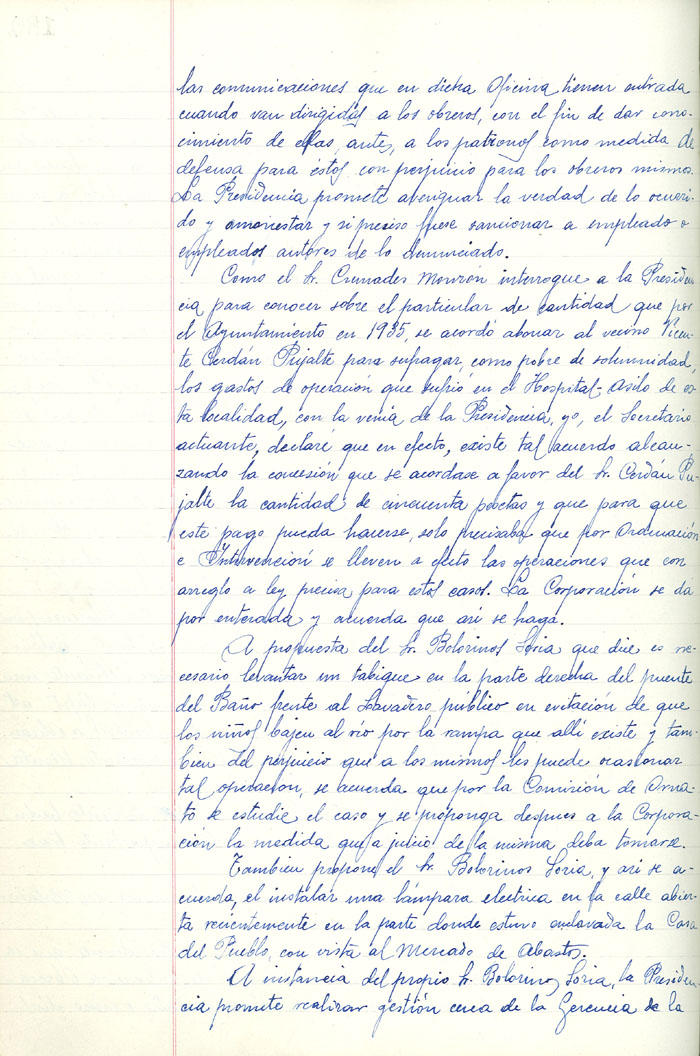 las comunicaciones que en dicha Oficina tienen entrada
cuando van dirigidas a los obreros, con el fin de dar cono-
cimiento de ellas, antes, a los patronos como medida de
defensa para éstos con perjuicio para los obreros mismos.
La Presidencia promete averiguar la verdad de lo ocurri-
do y amonestar y si preciso fuese sancionar a empleado o
empleados autores de lo denunciado.
Como el Sr. Cremades Monzón interrogue a la Presiden
cia para conocer sobre el particular de cantidad que por
el Ayuntamiento en 1935, se acordó abonar al vecino Vicen-
te Cerdán Pujalte para sufragar, como pobre de solemnidad,
los gastos de operación que sufrió en el Hospital-Asilo de es-
ta localidad, con la venia de la Presidencia, yo, el Secretario
actuante, declaré que en efecto, existe tal acuerdo alcan-
zando la concesión que se acordase a favor del Sr. Cerdán Pu-
jalte la cantidad de cincuenta pesetas y que para que
este pago pueda hacerse, solo precisaba que por Ordenación
e Intervención se lleven a efecto las operaciones que con
arreglo a ley precisa para estos casos. La Corporación se da
por enterada y acuerda que asi se haga.
A propuesta del Sr. Bolorinos Soria que dice es ne-
cesario levantar un tabique en la parte derecha del puente
del Baño frente al Lavadero público en evitación de que
los niños bajen al río por la rampa que allí existe y tam-
bien del perjuicio que a los mismos les puede ocasionar
tal operación, se acuerda que por la Comisión de Orna-
to se estudie el caso y se proponga despues a la Corpora-
ción la medida que a juicio de la misma deba tomarse.
Tambien propone el Sr. Bolorinos Soria, y asi se a-
cuerda, el instalar una lámpara electrica en la calle abier-
ta recientemente en la parte donde estuvo enclavada la Casa
del Pueblo, con vista al Mercado de Abastos.
A instancia del propio Sr. Bolorinos Soria, la Presiden-
cia promete realizar gestión cerca de la Gerencia de la